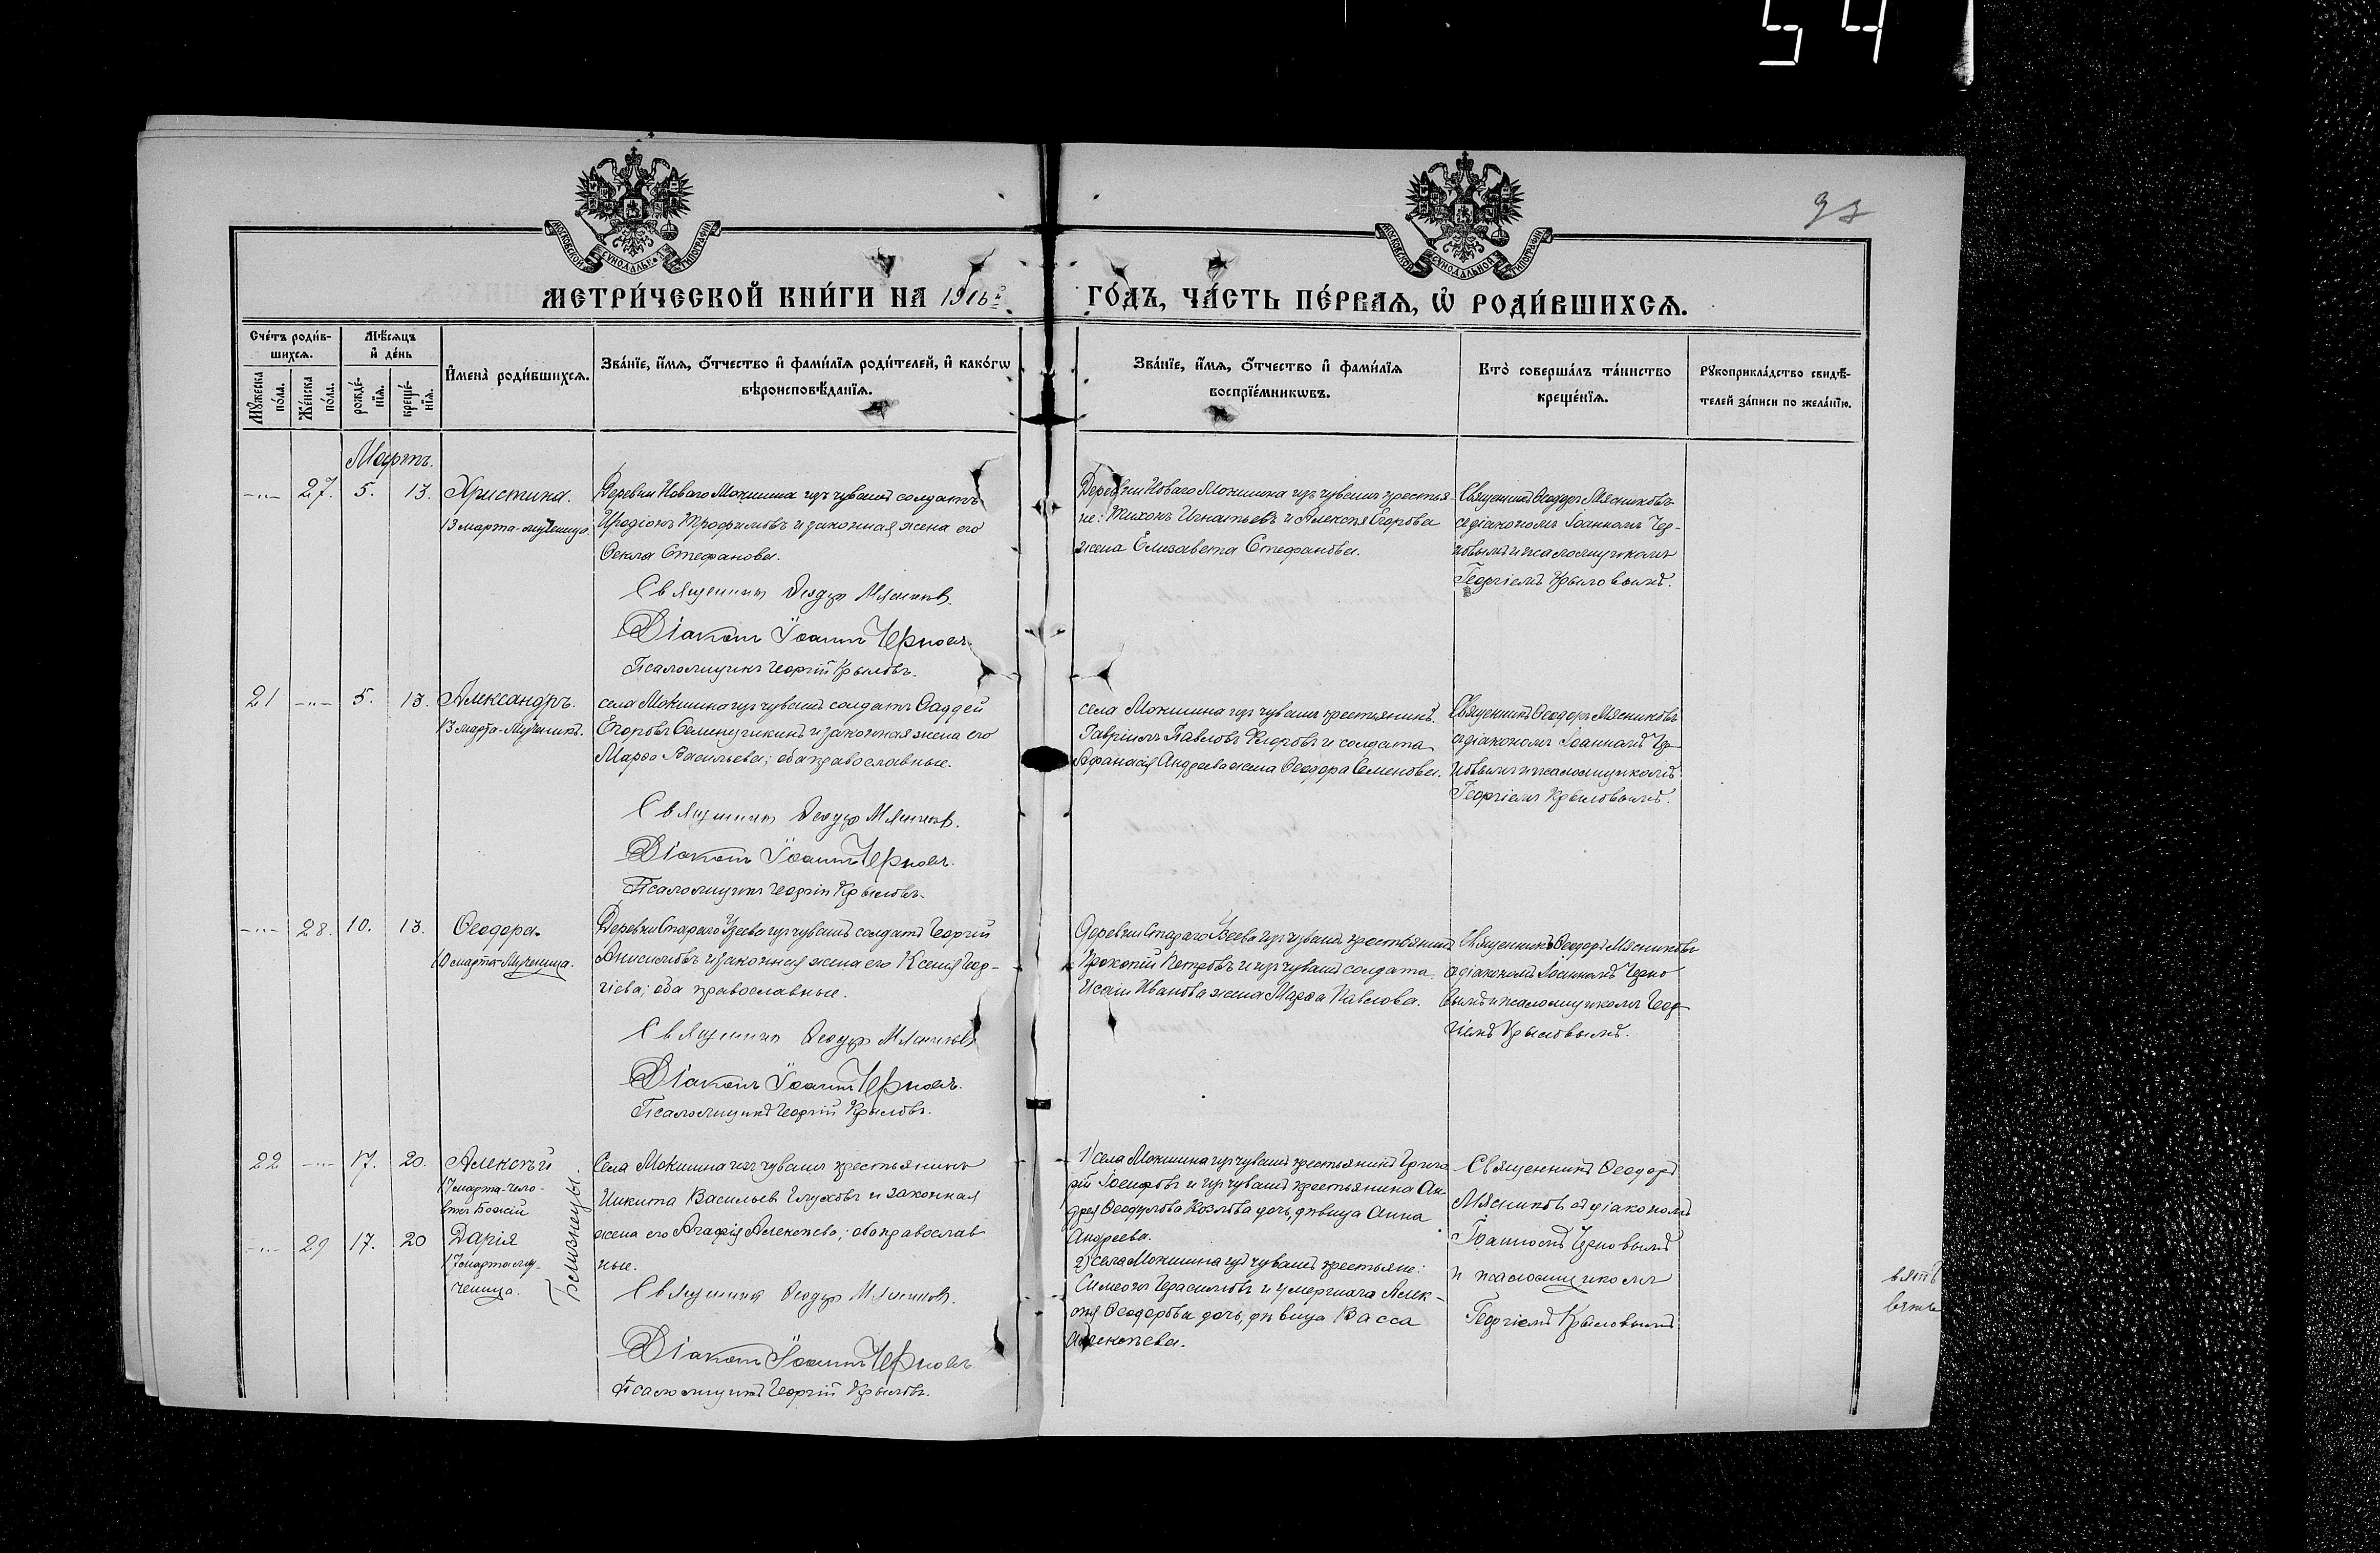 54
МОСКОВСКОЙ СУНОДАЛЬНОЙ ТИПОГРАФІИ
МОСКОВСКОЙ СУНОДАЛЬНОЙ ТИПОГРАФІИ
МЕТРИ́ЧЕСКОЙ КНИ́ГИ НА 1916 й ГО́ДЪ, ЧА́СТЬ ПЕ́РВАѦ, Ѡ҆ РОДИ́ВШИХСѦ.
Сче́тъ роди́в-
шихсѧ.
Мꙋ́жеска
по́ла.
Же́нска
по́ла.
Мѣ́сѧцъ
и҆ де́нь
рожде́-
нїѧ.
креще́-
нїѧ.
И҆мена̀ роди́вшихсѧ.
Зва́нїе, и҆́мѧ, ѻ҆́тчество и҆ фами́лїѧ роди́телей, и҆ како́гѡ
вѣроисповѣ́данїѧ.
Зва́нїе, и҆́мѧ, ѻ҆́тчество и҆ фами́лїѧ
воспрїе́мникѡвъ.
Кто̀ соверша́лъ та́инство
креще́нїѧ.
Рꙋкоприкла́дство свидѣ́-
телей за́писи по жела́нїю.
Мартъ.
-"- 27. 5. 13. Христина.
13 марта-мученица.
Деревни Новаго Мокшина изъ чувашъ солдатъ
Иродіонъ Трофимовъ и законная жена его
Ѳекла Стефанова.
Священникъ Ѳеодоръ Мясниковъ.
Діаконъ Іоаннъ Черновъ.
Псаломщикъ Георгій Крыловъ.
Деревни Новаго Мокшина изъ чувашъ крестья-
не: Тихонъ Игнатьевъ и Алексѣя Егорова
жена Елизавета Стефанова.
Священникъ Ѳеодоръ Мясниковъ
съ діакономъ Іоанномъ Чер-
новымъ и псаломщикомъ
Георгіемъ Крыловымъ.
21 -"- 5. 13. Александръ.
13 марта-Мученикъ.
села Мокшина изъ чувашъ солдатъ Ѳаддей
Егоровъ и законная жена его
Марѳа Васильева; оба православные.
Священникъ Ѳеодоръ Мясниковъ.
Діаконъ Іоаннъ Черновъ.
Псаломщикъ Георгій Крыловъ.
села Мокшина изъ чувашъ крестьянинъ
Гавріилъ Павловъ и солдата
Аѳанасія Андреева жена Ѳеодора Семенова.
Священникъ Ѳеодоръ Мясниковъ
съ діакономъ Іоанномъ Чер-
новымъ и псаломщикомъ
Георгіемъ Крыловымъ.
-"- 28. 10. 13. Ѳеодора.
10 марта-Мученица.
Деревни Стараго Узеева изъ чувашъ солдатъ Георгій
Анисимовъ и законная жена его Ксенія Геор-
гіева; оба православные.
Священникъ Ѳеодоръ Мясниковъ
Діаконъ Іоаннъ Черновъ.
Псаломщикъ Георгій Крыловъ.
Деревни Стараго Узеева изъ чувашъ крестьянинъ
Прокопій Петровъ и изъ чувашъ солдата
Исаіи Иванова жена Марѳа Павлова.
Священникъ Ѳеодоръ Мясниковъ
съ діакономъ Іоанномъ Черно
вымъ и псаломщикомъ Геор-
гіемъ Крыловымъ.
22 -"- 17. 20. Алексѣй
17 марта-Чело-
вѣкъ Божій
-"- 29 17. 20 Дарія
17 марта му-
ченица.
Близнецы.
Села Мокшина изъ чувашъ крестьянинъ
Никита Васильев Глуховъ и законная
жена его Агафія Алексѣева; оба православ
ные.
Священникъ Ѳеодоръ Мясниковъ.
Діаконъ Іоаннъ Черновъ
Псаломщикъ Георгій Крыловъ.
1) Села Мокшина изъ чувашъ крестьянинъ Григо
рій Іосифовъ и изъ чувашъ крестьянина Ан-
дрея Ѳеодулова Козлова дочь, дѣвица Анна
Андреева.
2) Села Мокшина изъ чувашъ крестьяне:
Симеонъ Герасимовъ и умершаго Алек-
сѣя Ѳеодорова дочь, дѣвица Васса
Алексѣева.
Священникъ Ѳеодоръ
Мясниковъ съ діакономъ
Іоанномъ Черновымъ
и псаломщикомъ
Георгіемъ Крыловымъ